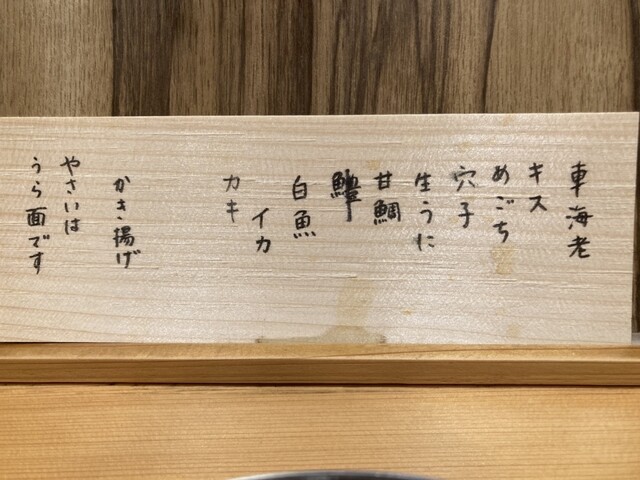 車海老
キス
めごち
穴子
生うに
甘鯛
白魚
イカ
カキ
かき揚げ
やさいは
うら面です